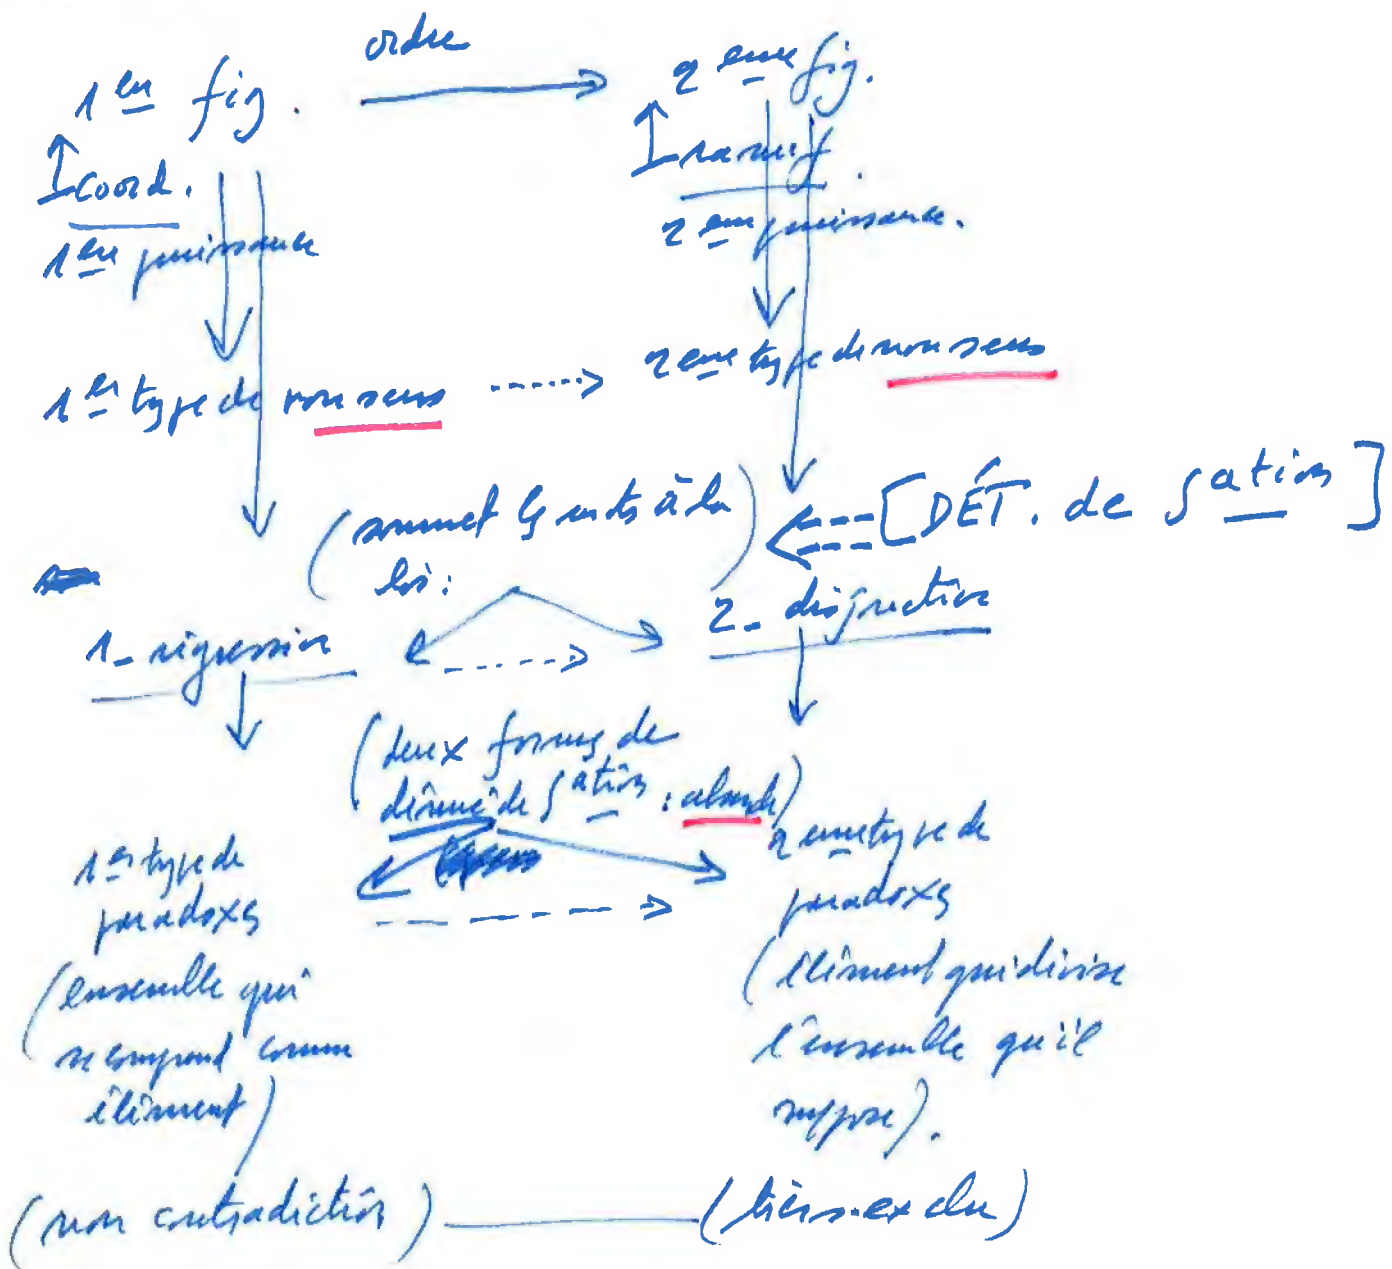 ordre
1ère fig.
2ème fig.
coord.
ramif.
1ère puissance
2ème puissance.
1er type de non sens
2ème type de non sens
(soumet les mots à la
loi :
)
[DÉT. de Sation]
1- régression
2- disjonction
(deux formes de
démué de Sation : absurde)
1er type de
paradoxes
(ensemble qui
se comprend comme
élément)
2ème type de
paradoxes
(élément qui divise
l'ensemble qu'il
suppose).
(non contradiction)
(tiers-exclu)